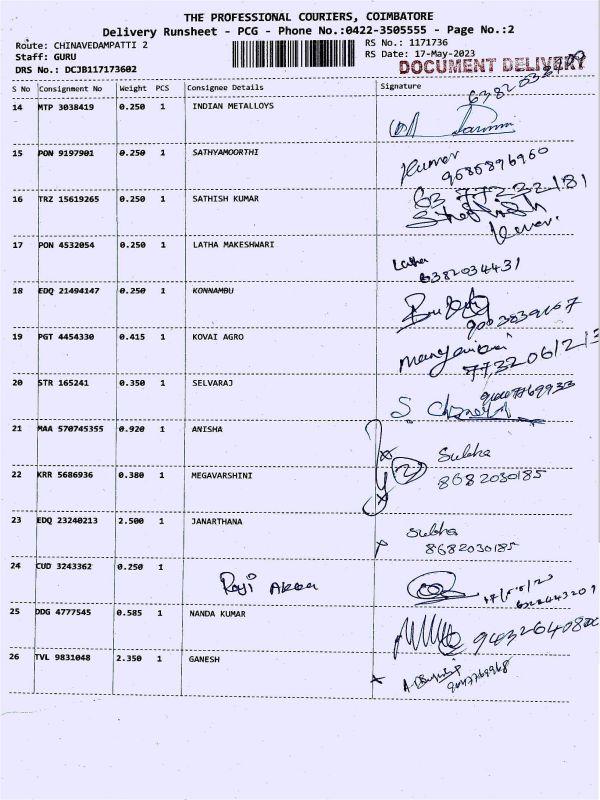 THE PROFESSIONAL COURIERS, COIMBATORE
Delivery Runsheet - PCG - Phone No.:0422-3505555 - Page No.:2
Route: CHINAVEDAMPATTI 2 RS No.: 1171736
Staff: GURU RS Date: 17-May-2023
DRS No.: DCJB117173602 DOCUMENT DELIVERY
S No Consignment No Weight PCS Consignee Details Signature
14 MTP 3038419 0.250 1 INDIAN METALLOYS
15 PON 9197901 0.250 1 SATHYAMOORTHI
Kumar
9686896960
16 TRZ 15619265 0.250 1 SATHISH KUMAR
17 PON 4532054 0.250 1 LATHA MAKESHWARI
Latha
6382034431
18 EDQ 21494147 0.250 1 KONNAMBU
19 PGT 4454330 0.415 1 KOVAI AGRO
20 STR 165241 0.350 1 SELVARAJ
21 MAA 570745355 0.920 1 ANISHA
Subha
8682030185
22 KRR 5686936 0.380 1 MEGAVARSHINI
23 EDQ 23240213 2.500 1 JANARTHANA
Subha
8682030185
24 CUD 3243362 0.250 1
25 DDG 4777545 0.585 1 NANDA KUMAR
26 TVL 9831048 2.350 1 GANESH